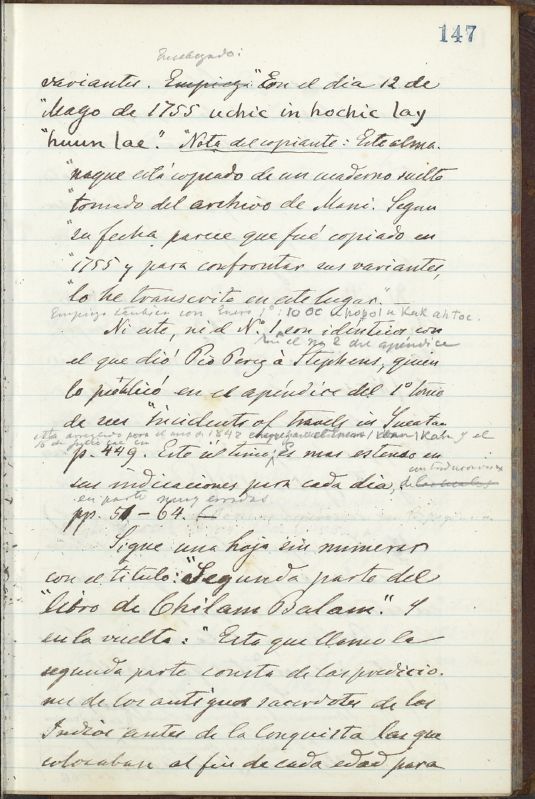 147
Encabezado:
variantes. Empieza: "En el dia 12 de
"Mayo de 1755 uchic in hochic lay
"huun lae". "Nota del copiante: Este alma-
"naque está copiado de un cuaderno suelto
"tomado del archivo de Mani. Segun
"su fecha parece que fué copiado en
"1755 y para confrontar sus variantes,
"lo he transcrito en este lugar."
Empieza tambien con Enero 1°: 10 Oc u hopol u Kak ah toc.
Ni este, ni el N° 1 son identicos con
ni el no 2 del apéndice
el que dió Pio Perez à Stephens, quien
lo publicó en el apéndice del 1° tomo
de sus "Incidents of travels in Yucatan
esta arreglado para el año de 1848 Kan y el
16 de Julio
p. 449. Este ultimo es mas estenso en
con traducciones
sus indicaciones para cada dia,
en parte muy erradas
pp. 51 – 64.
Sigue una hoja sin numerar
con el titulo: "Segunda parte del
"libro de Chilam Balam". Y
en la vuelta: "Esta que llamo la
segunda parte consta de las prediccio-
nes de los antiguos sacerdotes de los
Indios antes de la Conquista las que
colocaban al fin de cada edad para